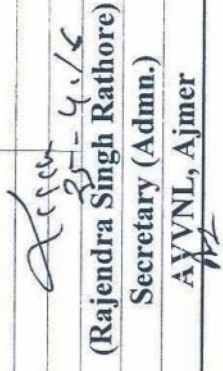 25-4-16
(Rajendra Singh Rathore)
Secretary (Admn.)
AVVNL, Ajmer